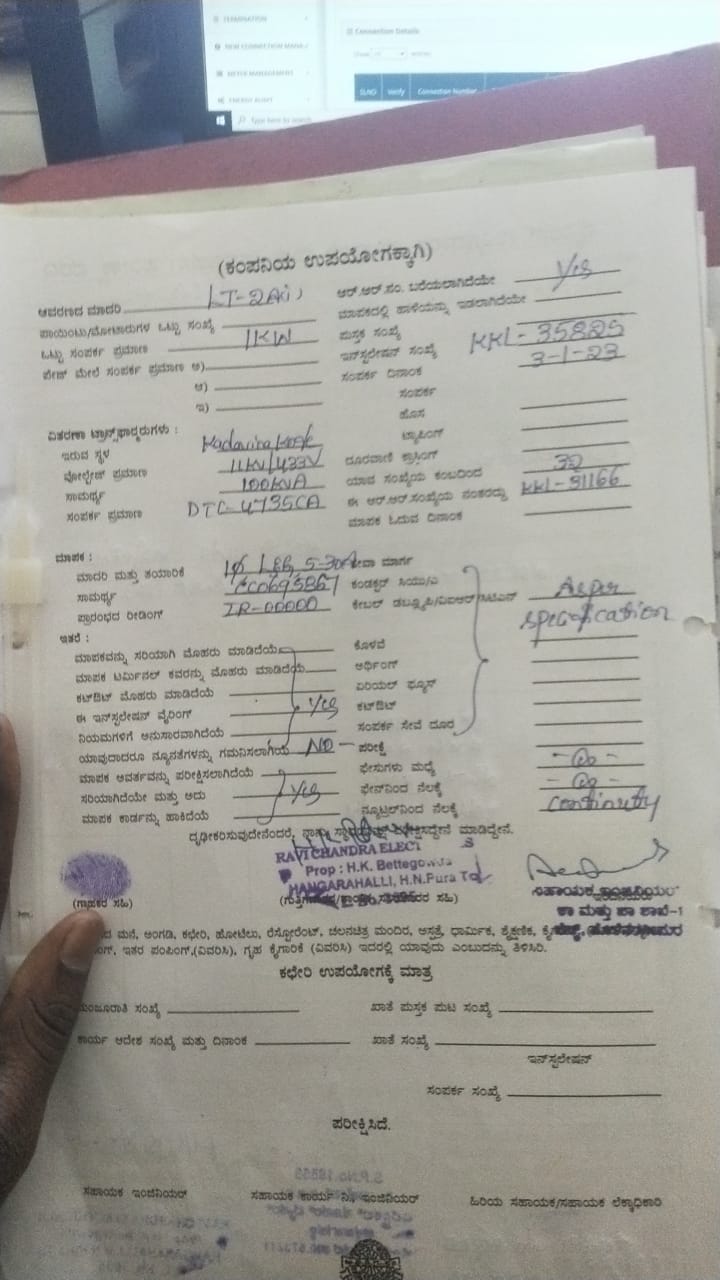 TERMINATION
NEW CONNECTION MANA
METER MANAGEMENT
ENERGY AUDIT
Connection Details
Show entries
SLNO Verify Connection Number
Type here to search
(ಕಂಪನಿಯ ಉಪಯೋಗಕ್ಕಾಗಿ)
ಆವರಣದ ಮಾದರಿ LT-2A(i) ಆರ್.ಆರ್.ಸಂ. ಬರೆಯಲಾಗಿದೆಯೇ Yes
ಪಾಯಿಂಟು/ಮೋಟಾರುಗಳ ಒಟ್ಟು ಸಂಖ್ಯೆ ಮಾಪಕದಲ್ಲಿ ಹಾಳೆಯನ್ನು ಇಡಲಾಗಿದೆಯೇ
ಒಟ್ಟು ಸಂಪರ್ಕ ಪ್ರಮಾಣ 1KW ಪುಸ್ತಕ ಸಂಖ್ಯೆ
ಪೇಜ್ ಮೇಲೆ ಸಂಪರ್ಕ ಪ್ರಮಾಣ ಅ) ಇನ್‌ಸ್ಟಲೇಷನ್ ಸಂಖ್ಯೆ KKL-35825
ಆ) ಸಂಪರ್ಕ ದಿನಾಂಕ 3-1-23
ಇ) ಸಂಪರ್ಕ
ಹೊಸ
ವಿತರಣಾ ಟ್ರಾನ್ಸ್‌ಫಾರ್ಮರುಗಳು : ಟ್ಯಾಪಿಂಗ್
ಇರುವ ಸ್ಥಳ ದೂರವಾಣಿ ಕ್ರಾಸಿಂಗ್
ವೋಲ್ಟೇಜ್ ಪ್ರಮಾಣ 11KV/433V ಯಾವ ಸಂಖ್ಯೆಯ ಕಂಬದಿಂದ 32
ಸಾಮರ್ಥ್ಯ 100KVA ಈ ಆರ್.ಆರ್.ಸಂಖ್ಯೆಯ ನಂತರದ್ದು KKL-31166
ಸಂಪರ್ಕ ಪ್ರಮಾಣ DTC-4735CA ಮಾಪಕ ಓದುವ ದಿನಾಂಕ
ಮಾಪಕ :
ಮಾದರಿ ಮತ್ತು ತಯಾರಿಕೆ 1ϕ L&G 5-30A ಸೇವಾ ಮಾರ್ಗ
ಸಾಮರ್ಥ್ಯ ಕಂಡಕ್ಟರ್ ಸಿಯು/ಎ
ಪ್ರಾರಂಭದ ರೀಡಿಂಗ್ IR-00000 ಕೇಬಲ್ As per
specification
ಇತರೆ :
ಮಾಪಕವನ್ನು ಸರಿಯಾಗಿ ಮೊಹರು ಮಾಡಿದೆಯೆ ಕೊಳವೆ
ಮಾಪಕ ಟರ್ಮಿನಲ್ ಕವರನ್ನು ಮೊಹರು ಮಾಡಿದೆಯೆ ಅರ್ಥಿಂಗ್
ಕಟ್‌ಔಟ್ ಮೊಹರು ಮಾಡಿದೆಯೆ ಏರಿಯಲ್ ಫ್ಯೂಸ್
ಈ ಇನ್‌ಸ್ಟಲೇಷನ್ ವೈರಿಂಗ್ Yes ಕಟ್‌ಔಟ್
ನಿಯಮಗಳಿಗೆ ಅನುಸಾರವಾಗಿದೆಯೆ ಸಂಪರ್ಕ ಸೇವೆ ದೂರ
ಯಾವುದಾದರೂ ನ್ಯೂನತೆಗಳನ್ನು ಗಮನಿಸಲಾಗಿದೆಯೆ NO ಪರೀಕ್ಷೆ
ಮಾಪಕ ಆವರ್ತವನ್ನು ಪರೀಕ್ಷಿಸಲಾಗಿದೆಯೆ ಫೇಸುಗಳು ಮಧ್ಯೆ
ಸರಿಯಾಗಿದೆಯೇ ಮತ್ತು ಅದು Yes ಫೇಸ್‌ನಿಂದ ನೆಲಕ್ಕೆ
ಮಾಪಕ ಕಾರ್ಡನ್ನು ಹಾಕಿದೆಯೆ ನ್ಯೂಟ್ರಲ್‌ನಿಂದ ನೆಲಕ್ಕೆ continuty
ದೃಢೀಕರಿಸುವುದೇನೆಂದರೆ, ಮಾಡಿದ್ದೇನೆ.
RAVICHANDRA ELECT
Prop : H.K. Bettegowda
MANGARAHALLI, H.N.Pura
(ಗ್ರಾಹಕರ ಸಹಿ)
ಸಹಾಯಕ ಇಂಜಿನಿಯರ್
ಮನೆ, ಅಂಗಡಿ, ಕಛೇರಿ, ಹೋಟೆಲು, ರೆಸ್ಟೋರೆಂಟ್, ಚಲನಚಿತ್ರ ಮಂದಿರ, ಆಸ್ಪತ್ರೆ, ಧಾರ್ಮಿಕ, ಶೈಕ್ಷಣಿಕ,
ಇತರ ಪಂಪಿಂಗ್,(ವಿವರಿಸಿ), ಗೃಹ ಕೈಗಾರಿಕೆ (ವಿವರಿಸಿ) ಇದರಲ್ಲಿ ಯಾವುದು ಎಂಬುದನ್ನು ತಿಳಿಸಿರಿ.
ಕಛೇರಿ ಉಪಯೋಗಕ್ಕೆ ಮಾತ್ರ
ಮಂಜೂರಾತಿ ಸಂಖ್ಯೆ ಖಾತೆ ಪುಸ್ತಕ ಪುಟ ಸಂಖ್ಯೆ
ಕಾರ್ಯ ಆದೇಶ ಸಂಖ್ಯೆ ಮತ್ತು ದಿನಾಂಕ ಖಾತೆ ಸಂಖ್ಯೆ
ಇನ್‌ಸ್ಟಲೇಷನ್
ಸಂಪರ್ಕ ಸಂಖ್ಯೆ
ಪರೀಕ್ಷಿಸಿದೆ.
ಸಹಾಯಕ ಇಂಜಿನಿಯರ್ ಸಹಾಯಕ ಕಾರ್ಯ ನಿ. ಇಂಜಿನಿಯರ್ ಹಿರಿಯ ಸಹಾಯಕ/ಸಹಾಯಕ ಲೆಕ್ಕಾಧಿಕಾರಿ